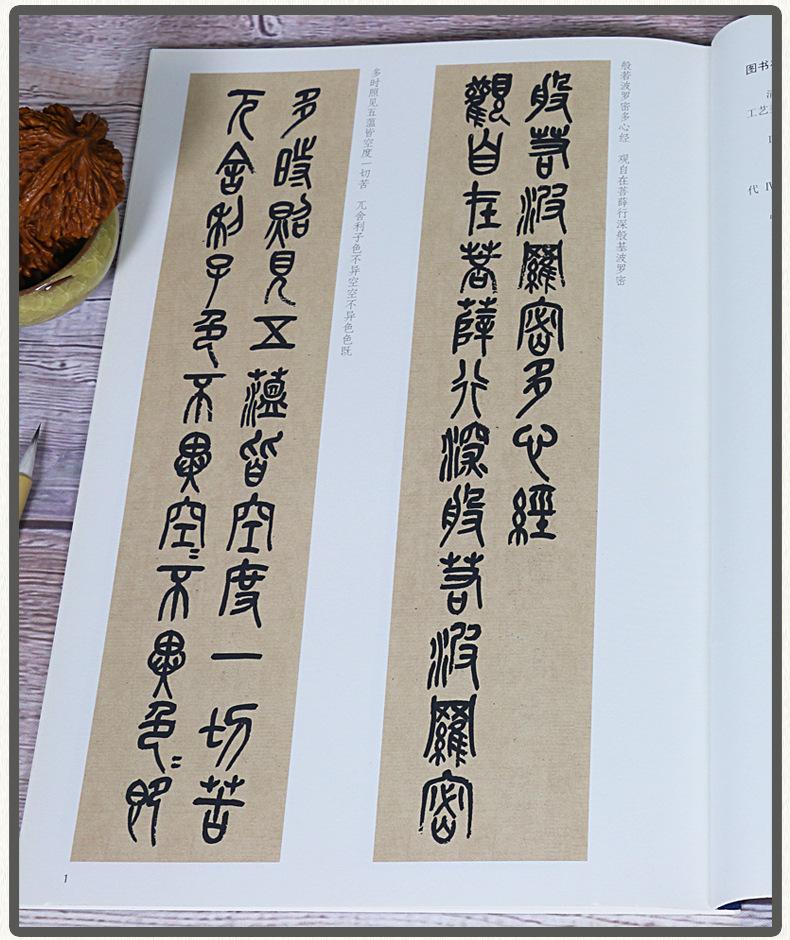 图书
工艺
代 Ⅳ
般若波罗密多心经 观自在菩薛行深般基波罗密
般若波羅密多心經
觀自在菩薛行深般若波羅密
多时照见五蕴皆空度一切苦 兀舍利子色不异空空不异色色既
多時照見五薀皆空度一切苦
兀舍利子色不異空=不異色=即
1